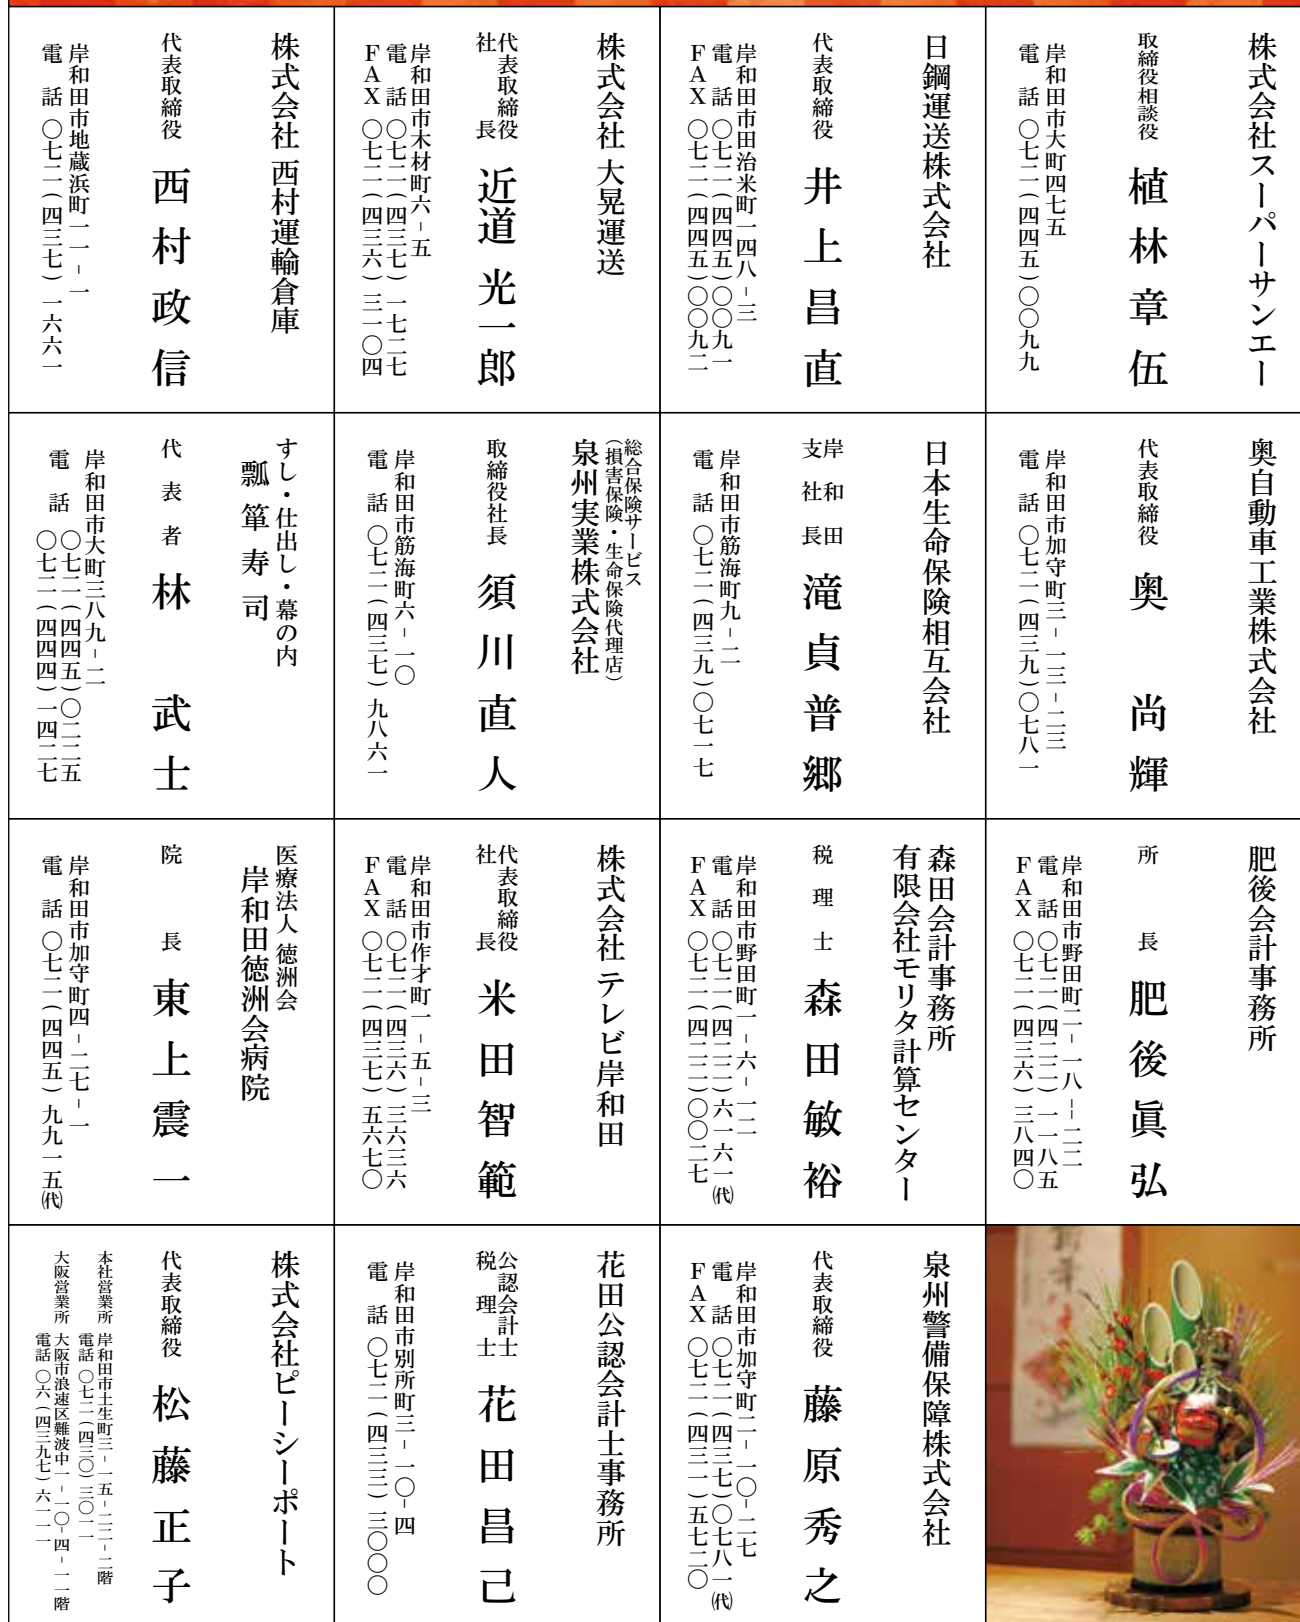 株式会社スーパーサンエー
取締役相談役 植林章伍
岸和田市大町四七五
電話 〇七二(四四五)〇〇九九
日鋼運送株式会社
代表取締役 井上昌直
岸和田市田治米町一四八-三
電話 〇七二(四四五)〇〇九一
FAX 〇七二(四四五)〇〇九二
株式会社 大晃運送
代表取締役
社長 近道光一郎
岸和田市木材町六-五
電話 〇七二(四三七)一七二七
FAX 〇七二(四三六)三一〇四
株式会社 西村運輸倉庫
代表取締役 西村政信
岸和田市地蔵浜町一一-一
電話 〇七二(四三七)一六六一
奥自動車工業株式会社
代表取締役 奥尚輝
岸和田市加守町三-一三-二三
電話 〇七二(四三九)〇七八一
日本生命保険相互会社
岸和田
支社長 滝貞普郷
岸和田市筋海町九-二
電話 〇七二(四三九)〇七一七
総合保険サービス
(損害保険・生命保険代理店)
泉州実業株式会社
取締役社長 須川直人
岸和田市筋海町六-一〇
電話 〇七二(四三七)九八六一
すし・仕出し・幕の内
瓢箪寿司
代表者 林武士
岸和田市大町三八九-二
電話 〇七二(四四五)〇二二五
〇七二(四四四)一四二七
肥後会計事務所
所長 肥後眞弘
岸和田市野田町二-一八-二二
電話 〇七二(四二二)一一八五
FAX 〇七二(四三六)三八四〇
森田会計事務所
有限会社モリタ計算センター
税理士 森田敏裕
岸和田市野田町一-六-一二
電話 〇七二(四二二)六一六一㈹
FAX 〇七二(四二二)〇〇二七
株式会社 テレビ岸和田
代表取締役
社長 米田智範
岸和田市作才町一-五-三
電話 〇七二(四三六)三六三六
FAX 〇七二(四三七)五六七〇
医療法人 徳洲会
岸和田徳洲会病院
院長 東上震一
岸和田市加守町四-二七-一
電話 〇七二(四四五)九九一五㈹
泉州警備保障株式会社
代表取締役 藤原秀之
岸和田市加守町二-一〇-二七
電話 〇七二(四三七)〇七八一㈹
FAX 〇七二(四三一)五七二〇
花田公認会計士事務所
公認会計士
税理士 花田昌己
岸和田市別所町三-一〇-四
電話 〇七二(四三三)三〇〇〇
株式会社ピーシーポート
代表取締役 松藤正子
本社営業所 岸和田市土生町三-一五-二二-二階
電話 〇七二(四三〇)三〇一一
大阪営業所 大阪市浪速区難波中一-一〇-四-一一階
電話 〇六(四三九七)六一一一